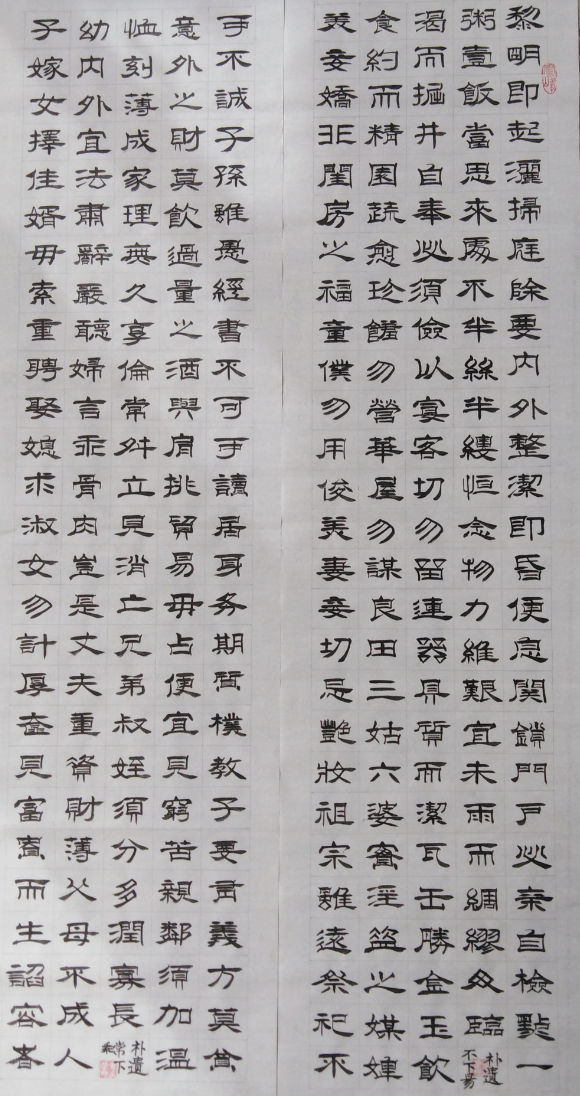 黎明即起灑掃庭除要內外整潔即昏便息関鎖門戶必亲自檢點一
粥壹飯當思來處不半絲半縷恒念物力維艱宜未雨而綢繆毋臨
朴遺
不下易
渴而掘井自奉必須儉以宴客切勿留連器具質而潔瓦缶勝金玉飲
食約而精園蔬愈珍饈勿營華屋勿謀良田三姑六婆實淫盜之媒婢
美妾嬌非閨房之福童僕勿用俊美妻妾切忌豔妝祖宗雖遠祭祀不
可不誠子孫雖愚經書不可不讀居身务期質樸教子要有義方莫貪
意外之財莫飲過量之酒與肩挑貿易毋占便宜見窮苦親鄰須加溫
恤刻薄成家理無久享倫常舛立見消亡兄弟叔姪須分多潤寡長
朴遺
常下
乖
幼內外宜法肅辭嚴聽婦言乖骨肉豈是丈夫重資財薄父母不成人
子嫁女擇佳婿毋索重聘娶媳求淑女勿計厚奩見富貴而生諂容者